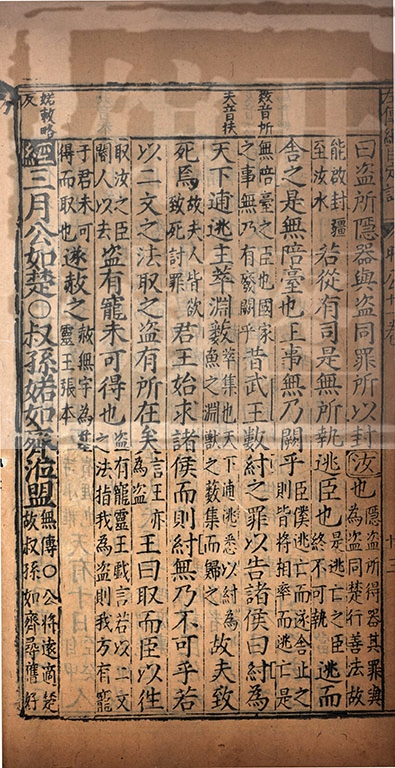 曰盜所隱器與盜同罪所以封汝也隱盜所得器其罪與為盜同楚行善法故
能啟封疆至汝水若從有司是無所執逃臣也是逃亡之臣終不可執逃而
舍之是無陪臺也王事無乃闕乎臣僕逃亡而遂舍止之則皆將相率而逃亡是
數音所
無陪臺之臣也國家之事無乃有廢闕乎昔武王數紂之罪以告諸侯曰紂為
夫音扶
天下逋逃主萃淵藪萃集也天下逋逃悉以紂為魚之淵獸之藪集而歸之故夫致
死焉故夫人皆欲致死討罪君王始求諸侯而則紂無乃不可乎若
以二文之法取之盜有所在矣言王亦為盜王曰取而臣以往
取汝之臣閽人以去盜有寵未可得也盜有寵靈王戲言若以二文之法指我為盜則我方有寵
于君未可得而取也遂赦之赦無宇為靈王張本
婼敕略反
經三月公如楚○叔孫婼如齊涖盟無傳○公將遠適楚故叔孫如齊尋舊好